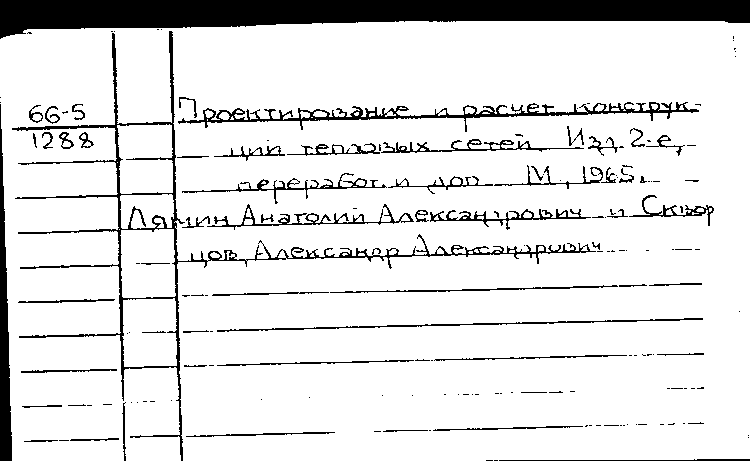 66-5
1288
Проектирование и расчет конструк-
ций тепловых сетей. Изд. 2-е,
переработ. и доп М., 1965.
Лямин, Анатолий Александрович и Сквор
цов, Александр Александрович